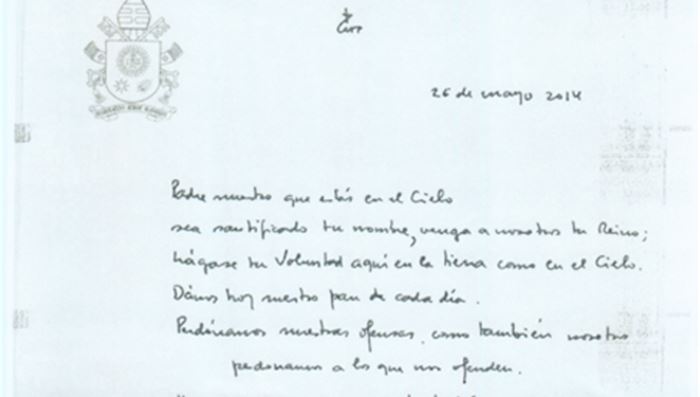 26 de mayo 2014
Padre nuestro que estás en el Cielo
sea santificado tu nombre, venga a nosotros tu Reino;
hágase tu Voluntad aquí en la tierra como en el Cielo.
Dános hoy nuestro pan de cada día.
Perdónanos nuestras ofensas, como también nosotros
perdonamos a los que nos ofenden.